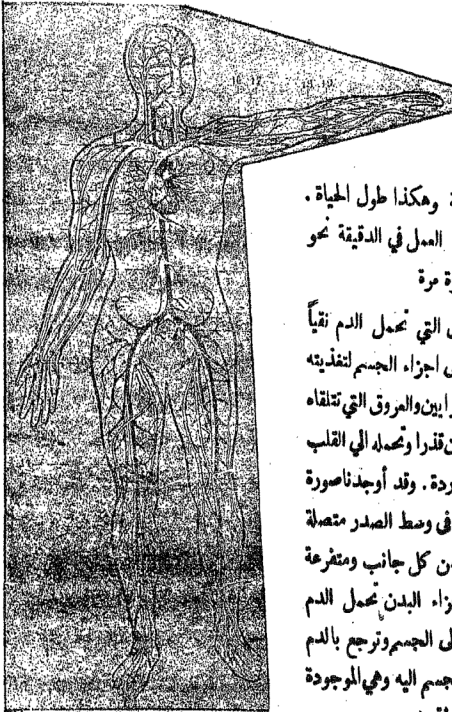 16 17
18 19
وهكذا طول الحياة .
العمل في الدقيقة نحو
مرة
التي تحمل الدم نقياً
اجزاء الجسم لتغذيته
والعروق التي تتلقاه
قذرا وتحمله الي القلب
وقد أوجدنا صورة
في وسط الصدر متصلة
من كل جانب ومتفرعة
البدن تحمل الدم
الجسم وترجع بالدم
اليه وهي الموجودة